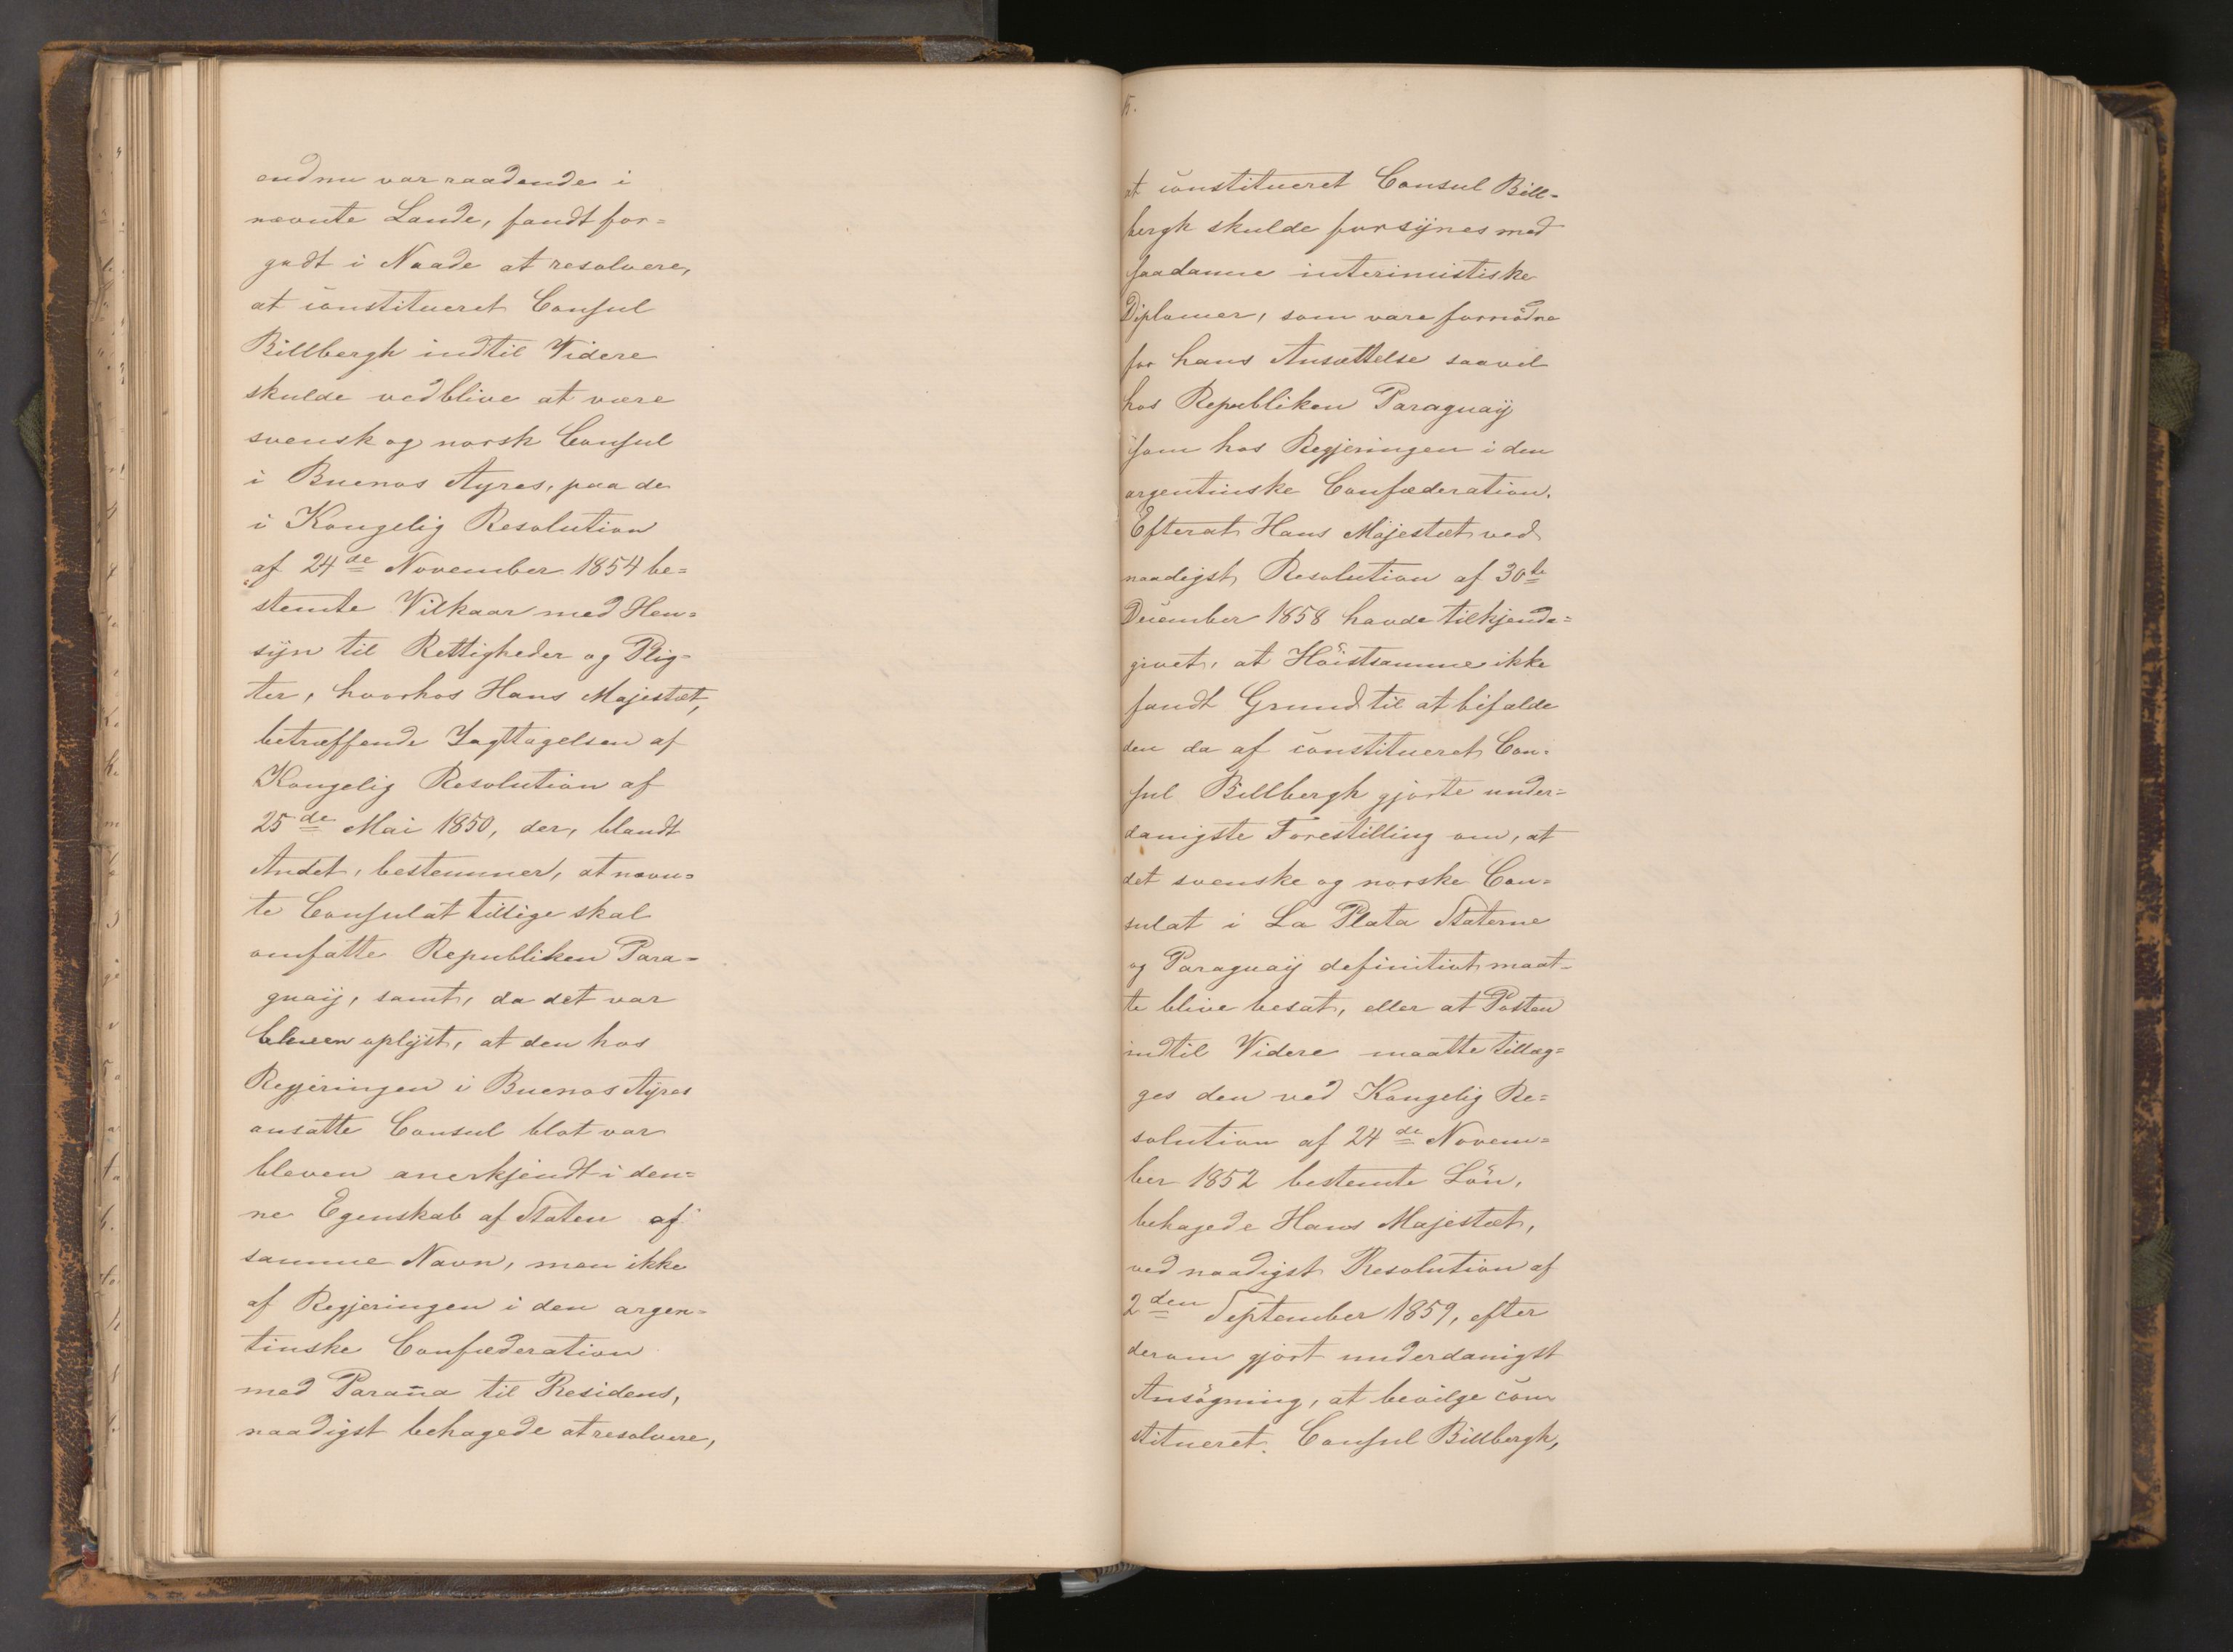 endnu var raadende i
nævnte Lande, fandt for-
godt i Naade at resolvere,
at constitueret Consul
Billbergh indtil Videre
skulde vedblive at være
svensk og norsk Consul
i Buenos Ayres, paa de
i Kongelig Resolution
af 24de November 1854 be-
stemte Vilkaar med Hen-
syn til Rettigheder og Plig-
ter, hvorhos Hans Majestæt,
betræffende Iagttagelsen af
Kongelig Resolution af
25de Mai 1850, der, blandt
Andet, bestemmer, at nævn-
te Consulat tillige skal
omfatte Republiken Para-
guaÿ, samt, da det var
bleven oplÿst, at den hos
Regjeringen i Buenos Aÿres
ansatte Consul blot var
bleven anerkjendt i den-
ne Egenskab af Staten af
samme Navn, men ikke
af Regjeringen i den argen-
tinske Confæderation
med Paraña til Residens,
naadigst behagede at resolvere,
5.
at constitueret Consul Bill-
bergh skulde forsÿnes med
saadanne interimistiske
Diplomer, som vare fornödne
for hans Ansættelse saavel
hos Republiken Paraguaÿ
som hos Regjeringen i den
argentinske Confæderation.
Efterat Hans Majestæt ved
naadigst Resolution af 30te
December 1858 havde tilkjende-
givet, at Höistsamme ikke
fandt Grund til at bifalde
den da af constitueret Con-
sul Billbergh gjorte under-
danigste Forestilling om, at
det svenske og norske Con-
sulat i La Plata Staterne
og Paraguaÿ definitivt maat-
te blive besat, eller at Posten
indtil Videre maatte tillæg-
ges den ved Kongelig Re-
solution af 24de Novem-
ber 1852 bestemte Lön,
behagede Hans Majestæt,
ved naadigst Resolution af
2den September 1859, efter
derom gjort underdanigst
Ansögning, at bevilge con
stitueret Consul Billbergh,